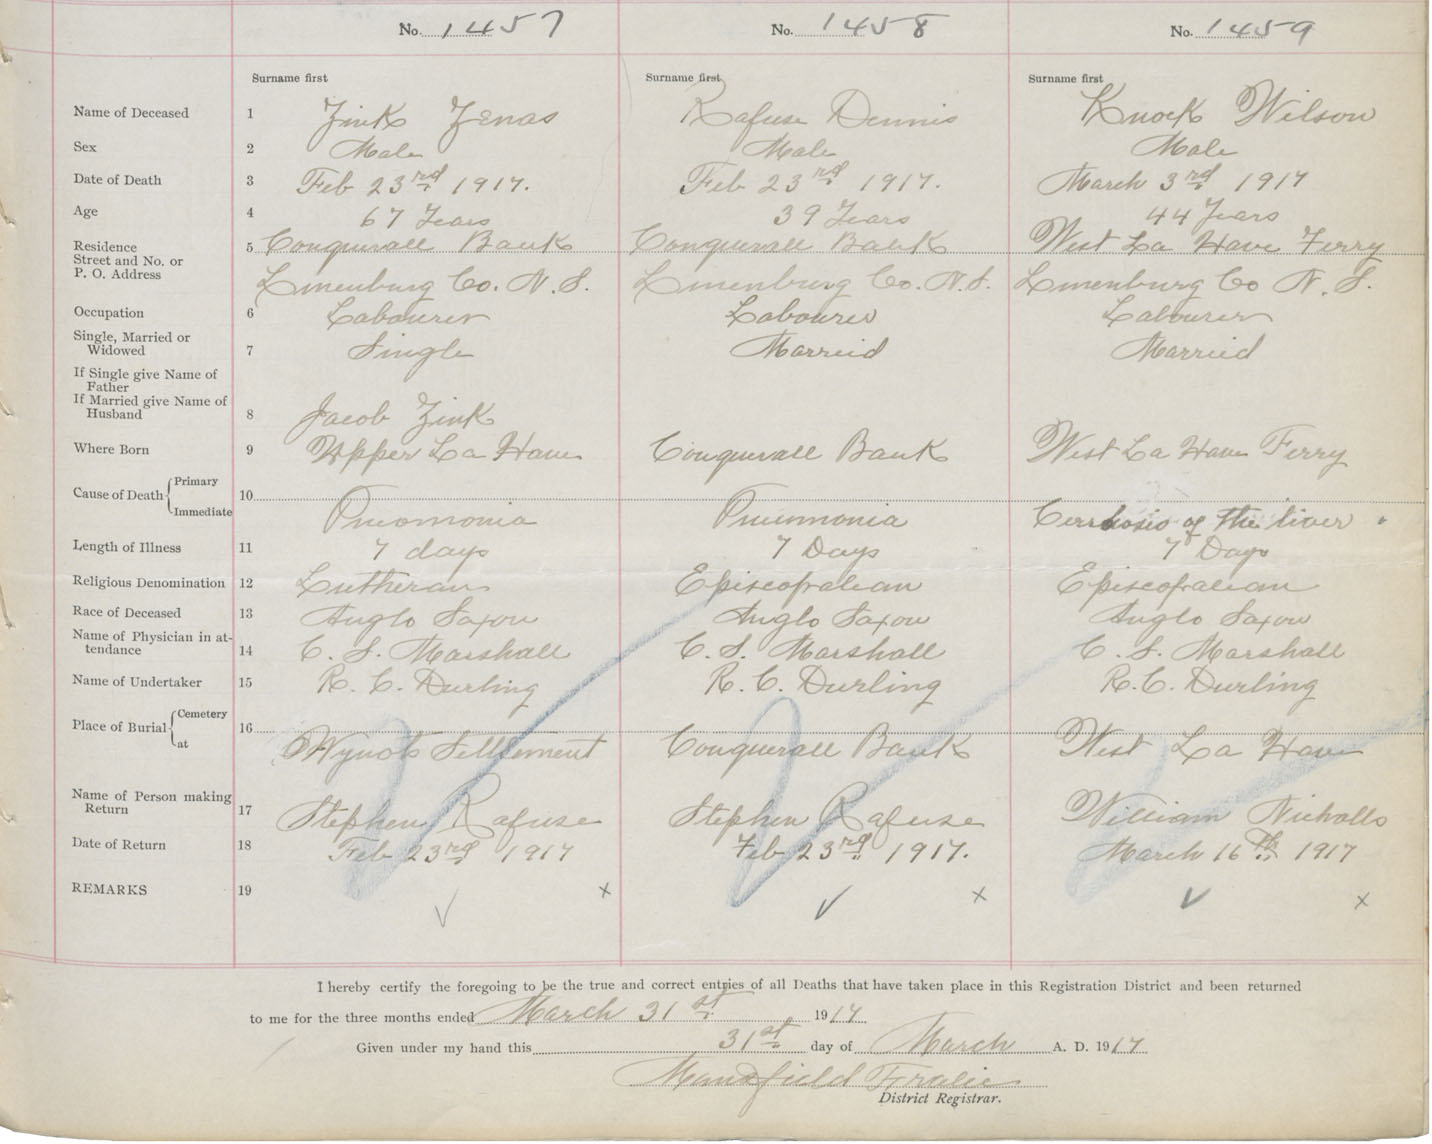 No. 1457 No. 1458 No. 1459
Surname first Surname first Surname first
Name of Deceased 1 Zink Zenas Rafuse Dennis Knock Wilson
Sex 2 Male Male Male
Date of Death 3 Feb 23rd 1917. Feb 23rd 1917. March 3rd 1917
Age 4 67 Years 39 Years 44 Years
Residence 5 Conquerall Bank Conquerall Bank West La Have Ferry
Street and No. or
P. O. Address Lunenburg Co. N. S. Lunenburg Co. N. S. Lunenburg Co N. S.
Occupation 6 Labourer Labourer Labourer
Single, Married or
Widowed 7 Single Marreid Marreid
If Single give Name of
Father
If Married give Name of
Husband 8 Jacob Zink
Where Born 9 Upper La Have Conquerall Bank West La Have Ferry
Cause of Death Primary 10
Immediate Pneomonia Pneumonia Cerrhosis of the liver
Length of Illness 11 7 days 7 Days 7 Days
Religious Denomination 12 Lutheran Episcopalian Episcopalian
Race of Deceased 13 Anglo Saxon Anglo Saxon Anglo Saxon
Name of Physician in at-
tendance 14 C. S. Marshall C. S. Marshall C. S. Marshall
Name of Undertaker 15 R. C. Durling R. C. Durling R. C. Durling
Place of Burial Cemetery 16
at Wynots Settlement Conquerall Bank West La Have
Name of Person making
Return 17 Stephen Rafuse Stephen Rafuse William Nicholls
Date of Return 18 Feb 23rd 1917 Feb 23rd 1917. March 16th 1917
REMARKS 19 x x x
I hereby certify the foregoing to be the true and correct entries of all Deaths that have taken place in this Registration District and been returned
to me for the three months ended March 31st 1917
Given under my hand this 31st day of March A. D. 1917
Mansfield Fralic
District Registrar.